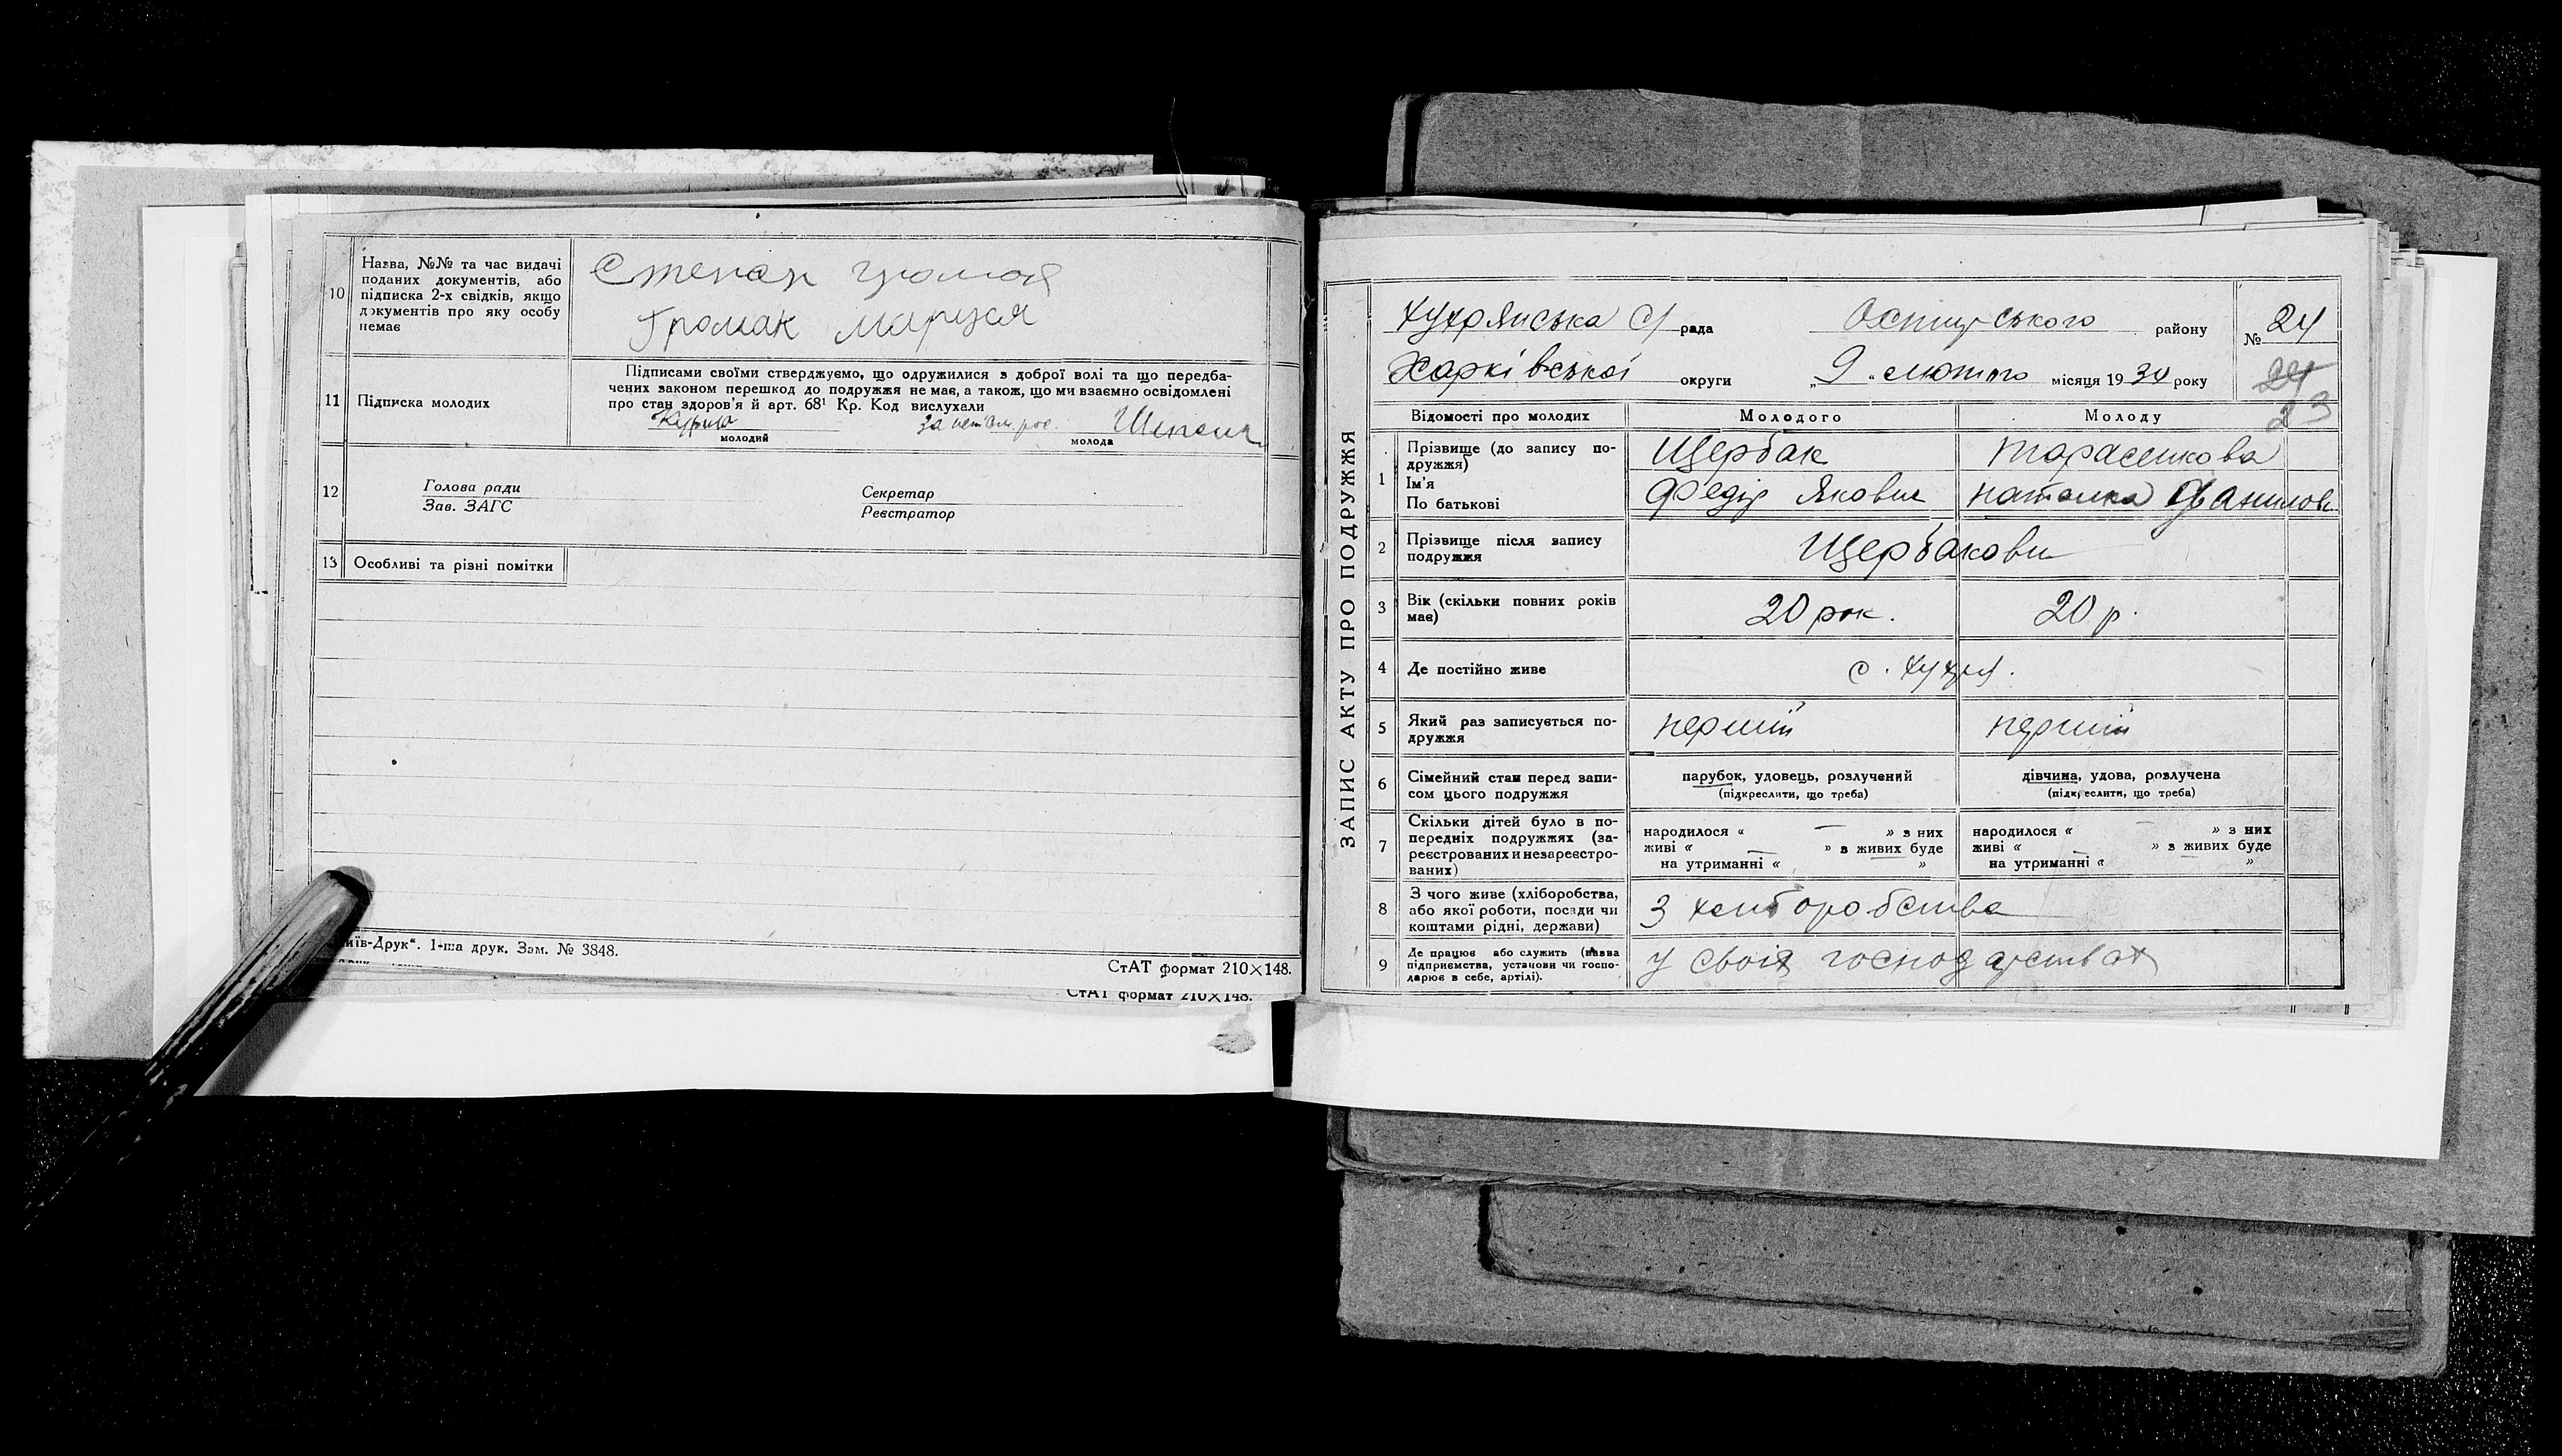 10
Назва, №№ та час видачі
поданих документів, або
підписка 2-х свідків, якщо
документів про яку особу
немає
Степан
Громак Маруся
11
Підписка молодих
Підписами своїми стверджуємо, що одружилися з доброї волі та що передба-
чених законом перешкод до подружжя не має, а також, що ми взаємно освідомлені
про стан здоров'я й арт. 68¹ Кр. Код вислухали
молодий
за неписм. рос.
молода
12
Голова ради
Зав. ЗАГС
Секретар
Реєстратор
13
Особливі та різні помітки
иїв-Друк“. 1-ша друк. Зам. № 3848.
СтАТ формат 210×148.
СтАТ формат 210×148.
ЗАПИС АКТУ ПРО ПОДРУЖЖЯ
Хухрянська С/ рада
району
№ 24
Харківської округи
„9“ лютого місяця 1934 року
24
23
Відомості про молодих
Молодого
Молоду
1
Прізвище (до запису по-
дружжя)
Ім'я
По батькові
Щербак
Федір Якович
Тарасенкова
Наталка Данилов.
2
Прізвище після запису
подружжя
Щербакови
3
Вік (скільки повних років
має)
20 рок.
20 р.
4
Де постійно живе
с. Хухря.
5
Який раз записується по-
дружжя
перший
перший
6
Сімейний стан перед запи-
сом цього подружжя
парубок, удовець, розлучений
(підкреслити, що треба)
дівчина, удова, розлучена
(підкреслити, що треба)
7
Скільки дітей було в по-
передніх подружжях (за-
реєстрованих и незареєстро-
ваних)
народилося « — » з них
живі « — » з живих буде
на утриманні « — »
народилося « — » з них
живі « — » з живих буде
на утриманні « — »
8
З чого живе (хліборобства,
або якої роботи, посади чи
коштами рідні, держави)
З хліборобства
9
Де працює або служить (назва
підприємства, установи чи госпо-
дарює в себе, артілі).
У своїх господарствах